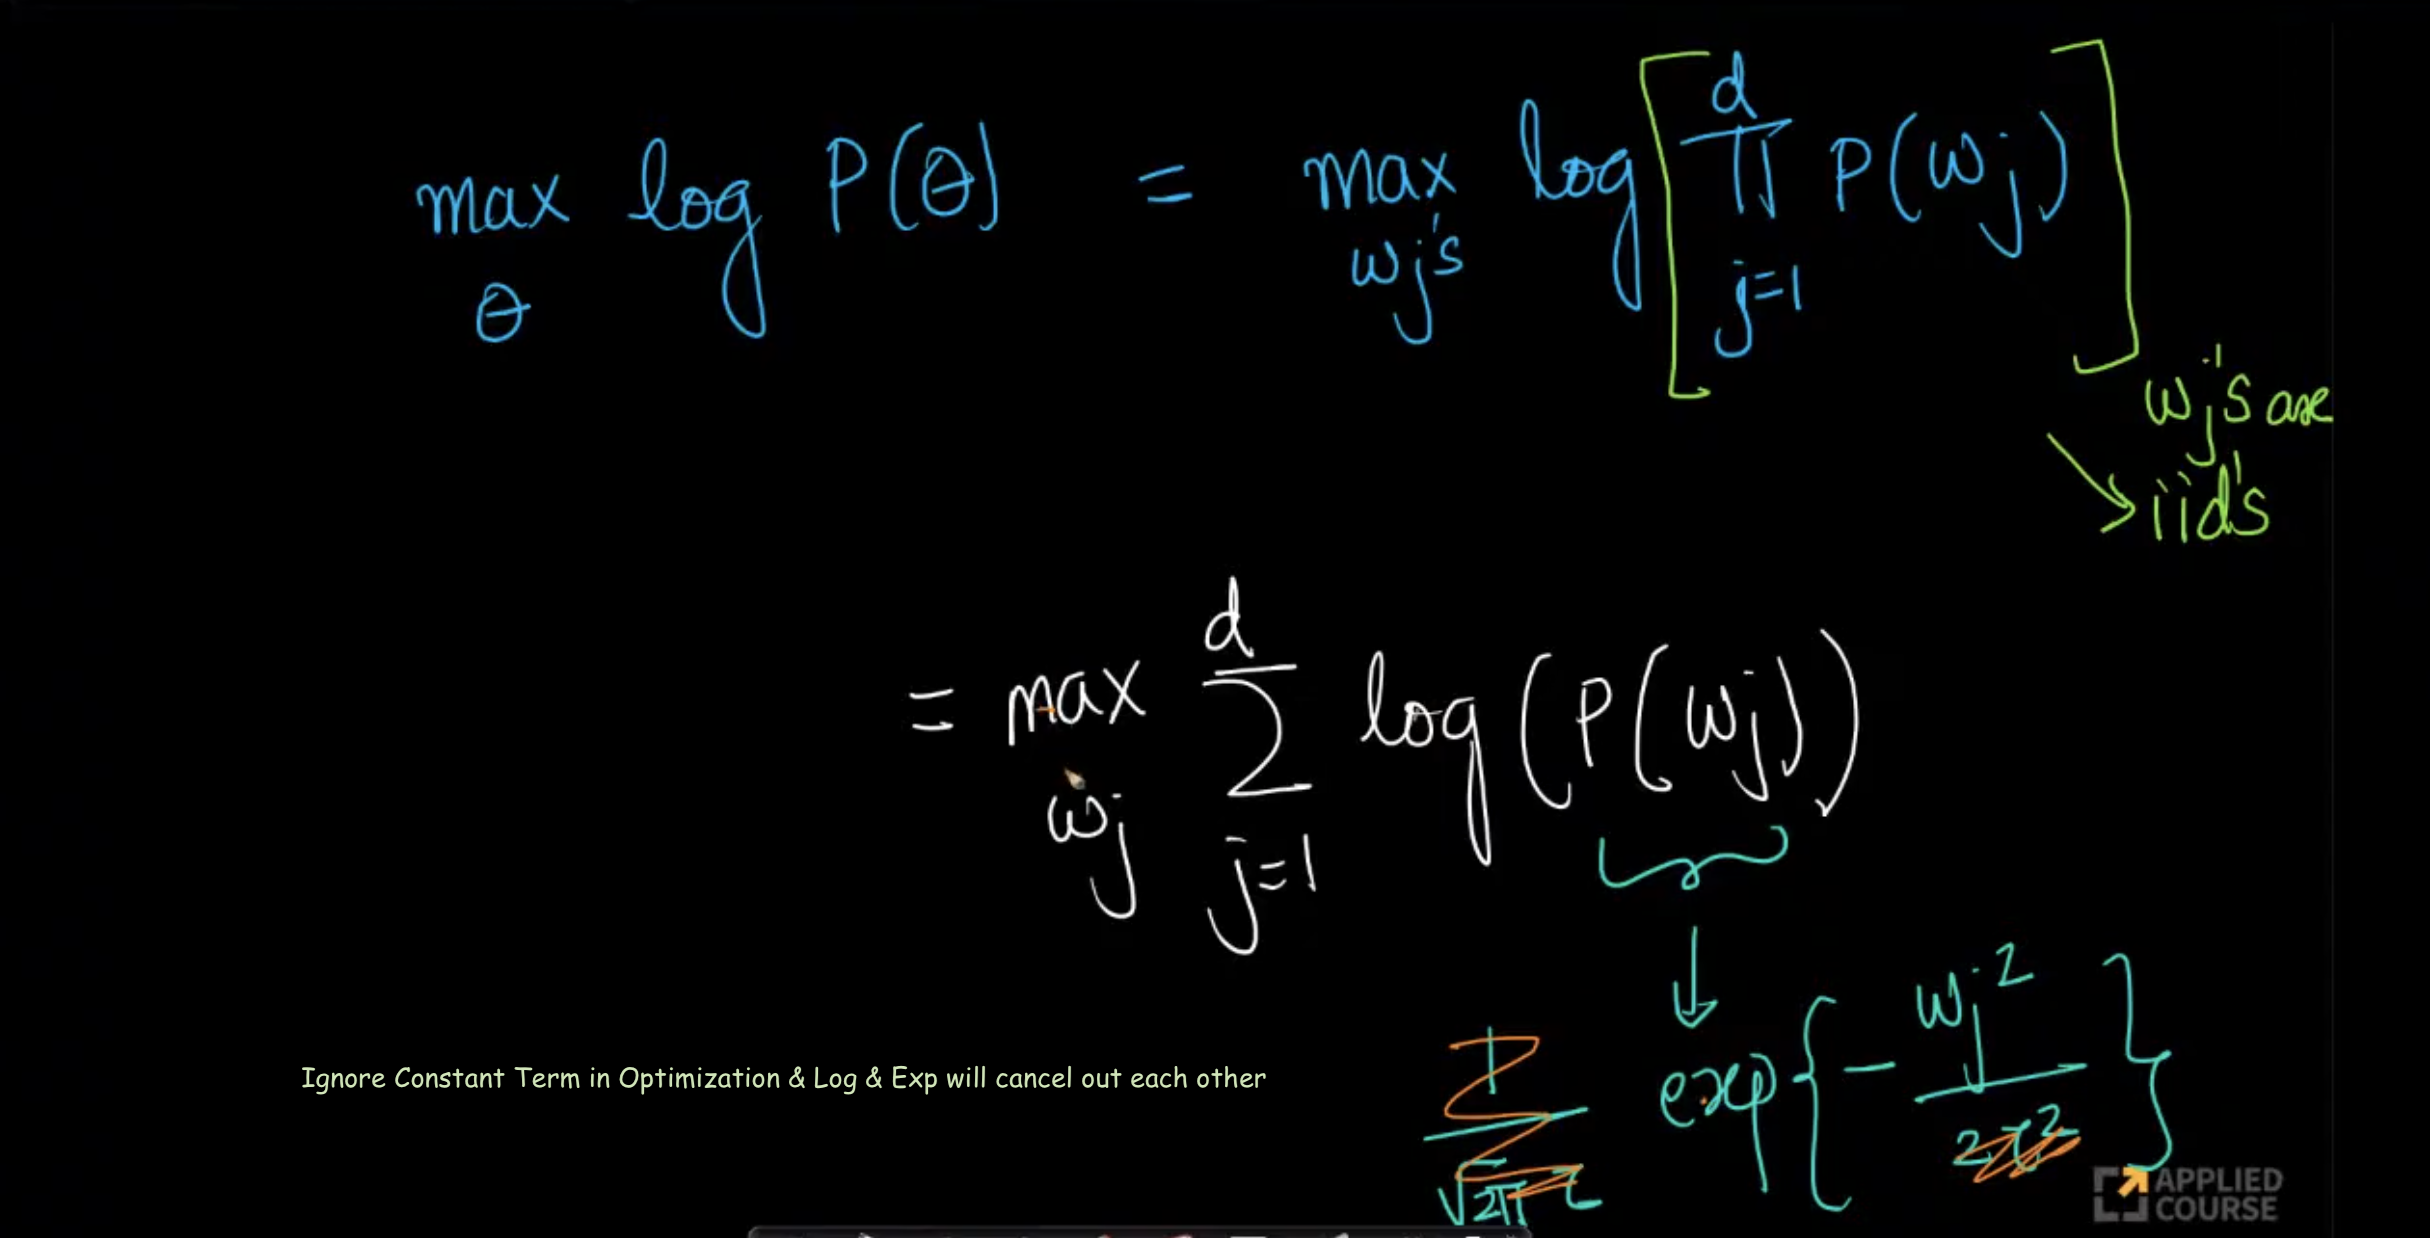 max log P(θ) = max log [ d ∏ P(wj) ]
θ wj's j=1
wj's are
iid's
d
= max Σ log (P(wj))
wj j=1
1/√2π τ exp { - wj² / 2τ² }
Ignore Constant Term in Optimization & Log & Exp will cancel out each other
APPLIED
COURSE